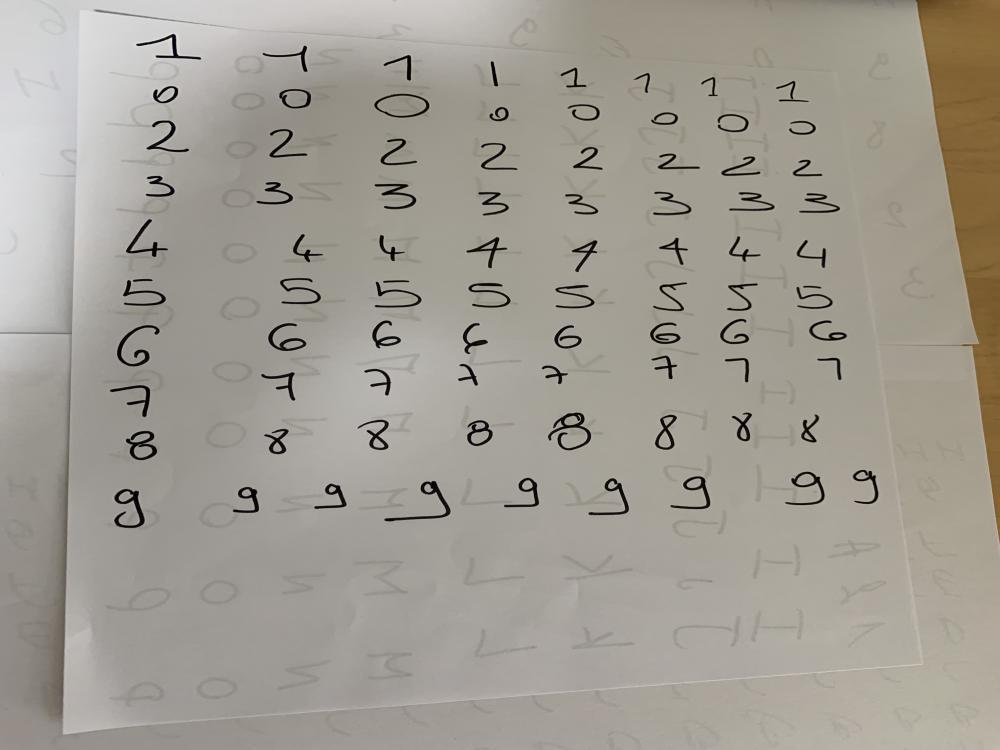 1 1 1 1 1 1 1 1
0 0 0 0 0 0 0 0
2 2 2 2 2 2 2 2
3 3 3 3 3 3 3 3
4 4 4 4 4 4 4 4
5 5 5 5 5 5 5 5
6 6 6 6 6 6 6 6
7 7 7 7 7 7 7 7
8 8 8 8 8 8 8 8
9 9 9 9 9 9 9 9 9